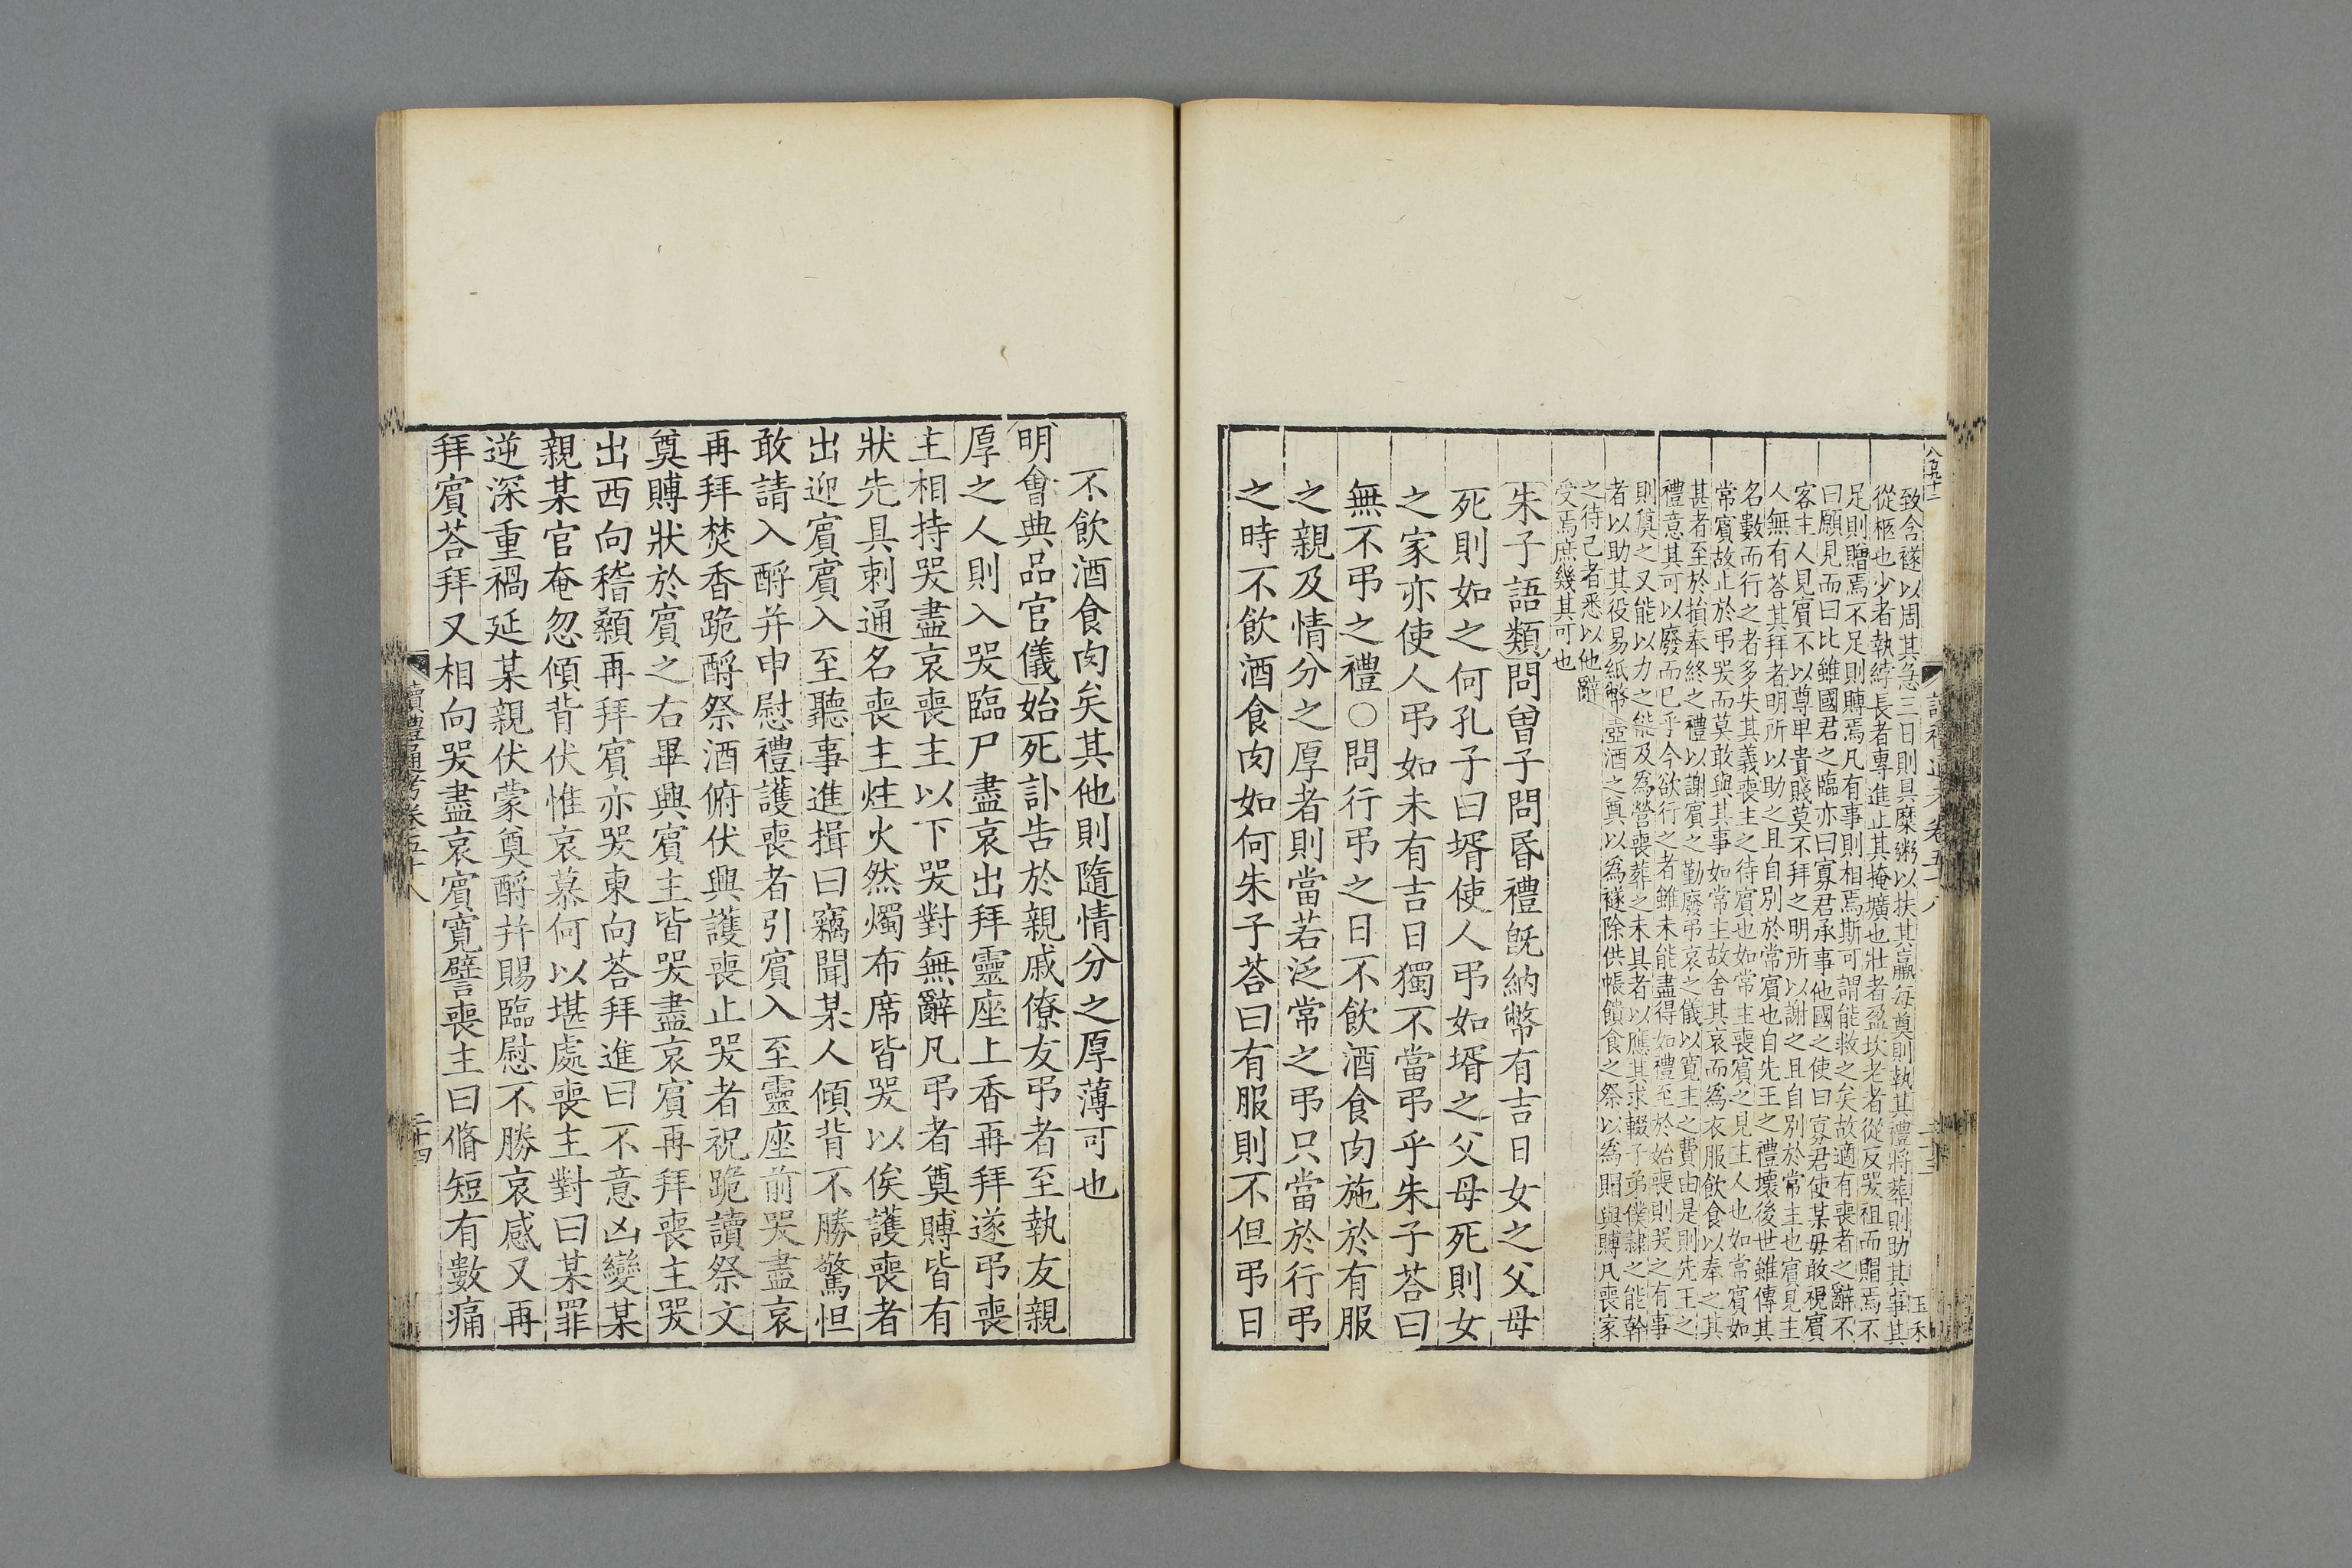 致含襚以周其急三日則具糜粥以扶其羸每奠則執其禮將葬則助其事其
從柩也少者執紼長者專進止其掩壙也壯者盈坎老者從反哭祖而賵焉不
足則贈焉不足則賻焉凡有事則相焉斯可謂能救之矣故適有喪者之辭不
曰願見而曰比雖國君之臨亦曰寡君承事他國之使曰寡君使某毋敢視賓
客主人見賓不以尊卑貴賤莫不拜之明所以謝之且自別於常主也賓見主
人無有荅其拜者明所以助之且自別於常賓也自先王之禮壞後世雖傳其
名數而行之者多失其義喪主之待賓也如常主喪賓之見主人也如常賓如
常賓故止於弔哭而莫敢與其事如常主故舍其哀而為衣服飲食以奉之其
甚者至於損奉終之禮以謝賓之勤廢弔哀之儀以寬主之費由是則先王之
禮意其可以廢而已乎今欲行之者雖未能盡得如禮至於始喪則哭之有事
則奠之又能以力之能及為營喪葬之未具者以應其求輟子弟僕隸之能幹
者以助其役易紙幣壺酒之奠以為襚除供帳饋食之祭以為賵與賻凡喪家
之待己者悉以他辭
受焉庶幾其可也
朱子語類問曾子問昏禮旣納幣有吉日女之父母
死則如之何孔子曰壻使人弔如壻之父母死則女
之家亦使人弔如未有吉日獨不當弔乎朱子荅曰
無不弔之禮○問行弔之日不飲酒食肉施於有服
之親及情分之厚者則當若泛常之弔只當於行弔
之時不飲酒食肉如何朱子荅曰有服則不但弔日
不飲酒食肉矣其他則隨情分之厚薄可也
明會典品官儀始死訃告於親戚僚友弔者至執友親
厚之人則入哭臨尸盡哀出拜靈座上香再拜遂弔喪
主相持哭盡哀喪主以下哭對無辭凡弔者奠賻皆有
狀先具刺通名喪主炷火然燭布席皆哭以俟護喪者
出迎賓賓入至聽事進揖曰竊聞某人傾背不勝驚怛
敢請入酹并申慰禮護喪者引賓入至靈座前哭盡哀
再拜焚香跪酹祭酒俯伏興護喪止哭者祝跪讀祭文
奠賻狀於賓之右畢興賓主皆哭盡哀賓再拜喪主哭
出西向稽顙再拜賓亦哭東向荅拜進曰不意凶變某
親某官奄忽傾背伏惟哀慕何以堪處喪主對曰某罪
逆深重禍延某親伏蒙奠酹并賜臨慰不勝哀感又再
拜賓荅拜又相向哭盡哀賓寬譬喪主曰脩短有數痛
讀禮通考卷五十八
二十四